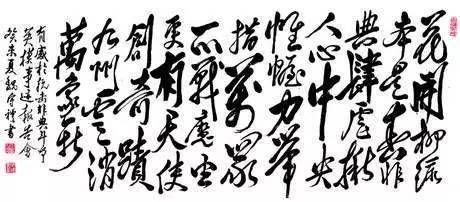 花開柳綠
本是春非
典肆虐揪
人心中央
帷幄力舉
措萬眾
戰魔
更有天使
創奇蹟
九州雲消
萬象新
有感於抗擊非典
英模事迹報告會
癸未夏魏書